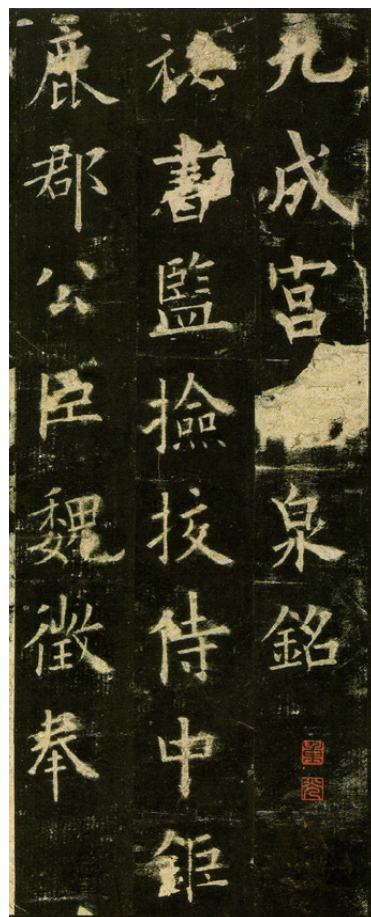 九成宮泉銘
祕書監撿挍侍中鉅
鹿郡公臣魏徵奉